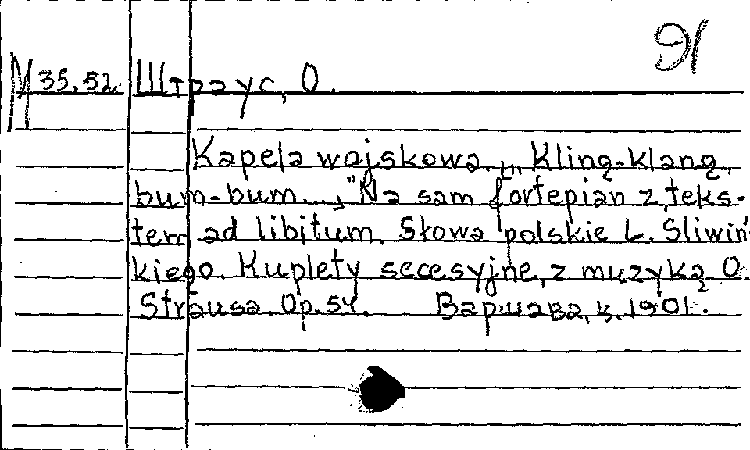 М 35.52. Штраус, О.
Kapela wojskowa. „Kling-klang,
bum-bum...” Na sam fortepian z teks-
tem ad libitum. Słowa polskie L. Śliwiń-
kiego. Kuplety secesyjne, z muzyką O.
Strausa. Op. 54. Варшава, ц. 1901.